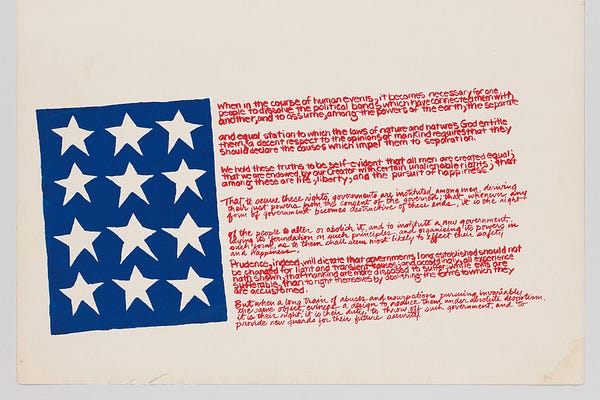 When in the course of human events, it becomes necessary for one
people to dissolve the political bands which have connected them with
another, and to assume, among the powers of the earth, the separate
and equal station to which the laws of nature and nature's God entitle
them, a decent respect to the opinions of mankind requires that they
should declare the causes which impel them to separation.
We hold these truths to be self-evident that all men are created equal;
that we are endowed by our Creator with certain unalienable rights; that
among these are life, liberty, and the pursuit of happiness.
That to secure these rights, governments are instituted among men, deriving
their just powers from the consent of the governed; that, whenever any
form of government becomes destructive of these ends, it is the right
of the people to alter or abolish it, and to institute a new government,
laying its foundation on such principles, and organizing its powers in
such form, as to them shall seem most likely to effect their safety,
and happiness.
Prudence, indeed, will dictate that governments long established should not
be changed for light and transient causes; and accordingly all experience
hath shown, that mankind are more disposed to suffer, while evils are
sufferable, than to right themselves by abolishing the forms to which they
are accustomed.
But when a long train of abuses and usurpations, pursuing invariably
the same object, evinces a design to reduce them under absolute despotism,
it is their right, it is their duty, to throw off such government, and to
provide new guards for their future security.